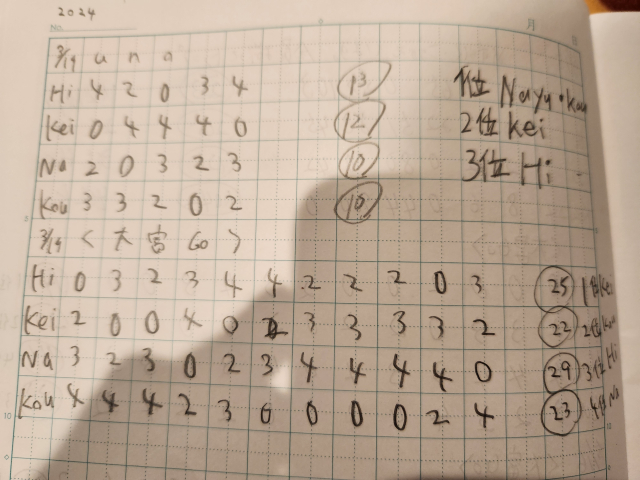 2024
No.
月
3/19 u n o
Hi 4 2 0 3 4 13 1位 Nayu・Kou
Kei 0 4 4 4 0 12 2位 Kei
Na 2 0 3 2 3 10 3位 Hi
Kou 3 3 2 0 2 10
3/19 < 大富 GO >
Hi 0 3 2 3 4 4 2 2 2 0 3 25 1位 Kei
Kei 2 0 0 4 0 2 3 3 3 3 2 22 2位 Kou
Na 3 2 3 0 2 3 4 4 4 4 0 29 3位 Hi
Kou 4 4 4 2 3 0 0 0 0 2 4 23 4位 Na